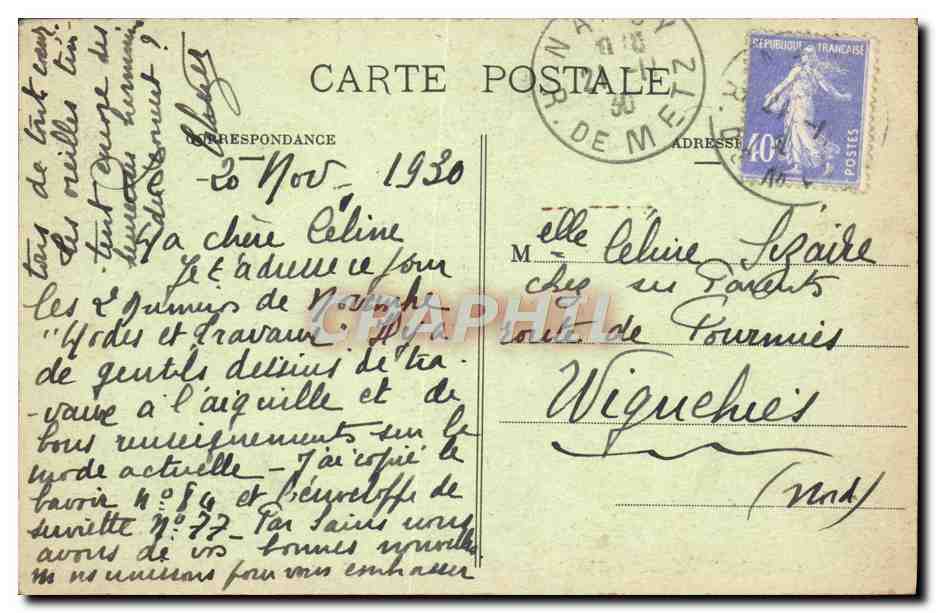 CARTE POSTALE
CORRESPONDANCE
ADRESSE
RÉPUBLIQUE FRANÇAISE
40c
POSTES
R. DE METZ
30
20 Nov 1930
Ma chère Céline
Je t'adresse ce jour
les 2 Numéros de Novembre
"Modes et Travaux". Il y a
de gentils dessins de tra-
-vaux à l'aiguille et de
bons renseignements sur la
mode actuelle - J'ai copié le
bavoir N° 84 et l'enveloppe de
serviette N° 77 - Par Sains nous
avons de vos bonnes nouvelles
nous unissons pour vous embrasser
tous de tout cœur
Les vieilles
Melle Céline Lizaire
chez ses Parents
route de Fourmies
Wignehies
(Nord)
CPAPHIL